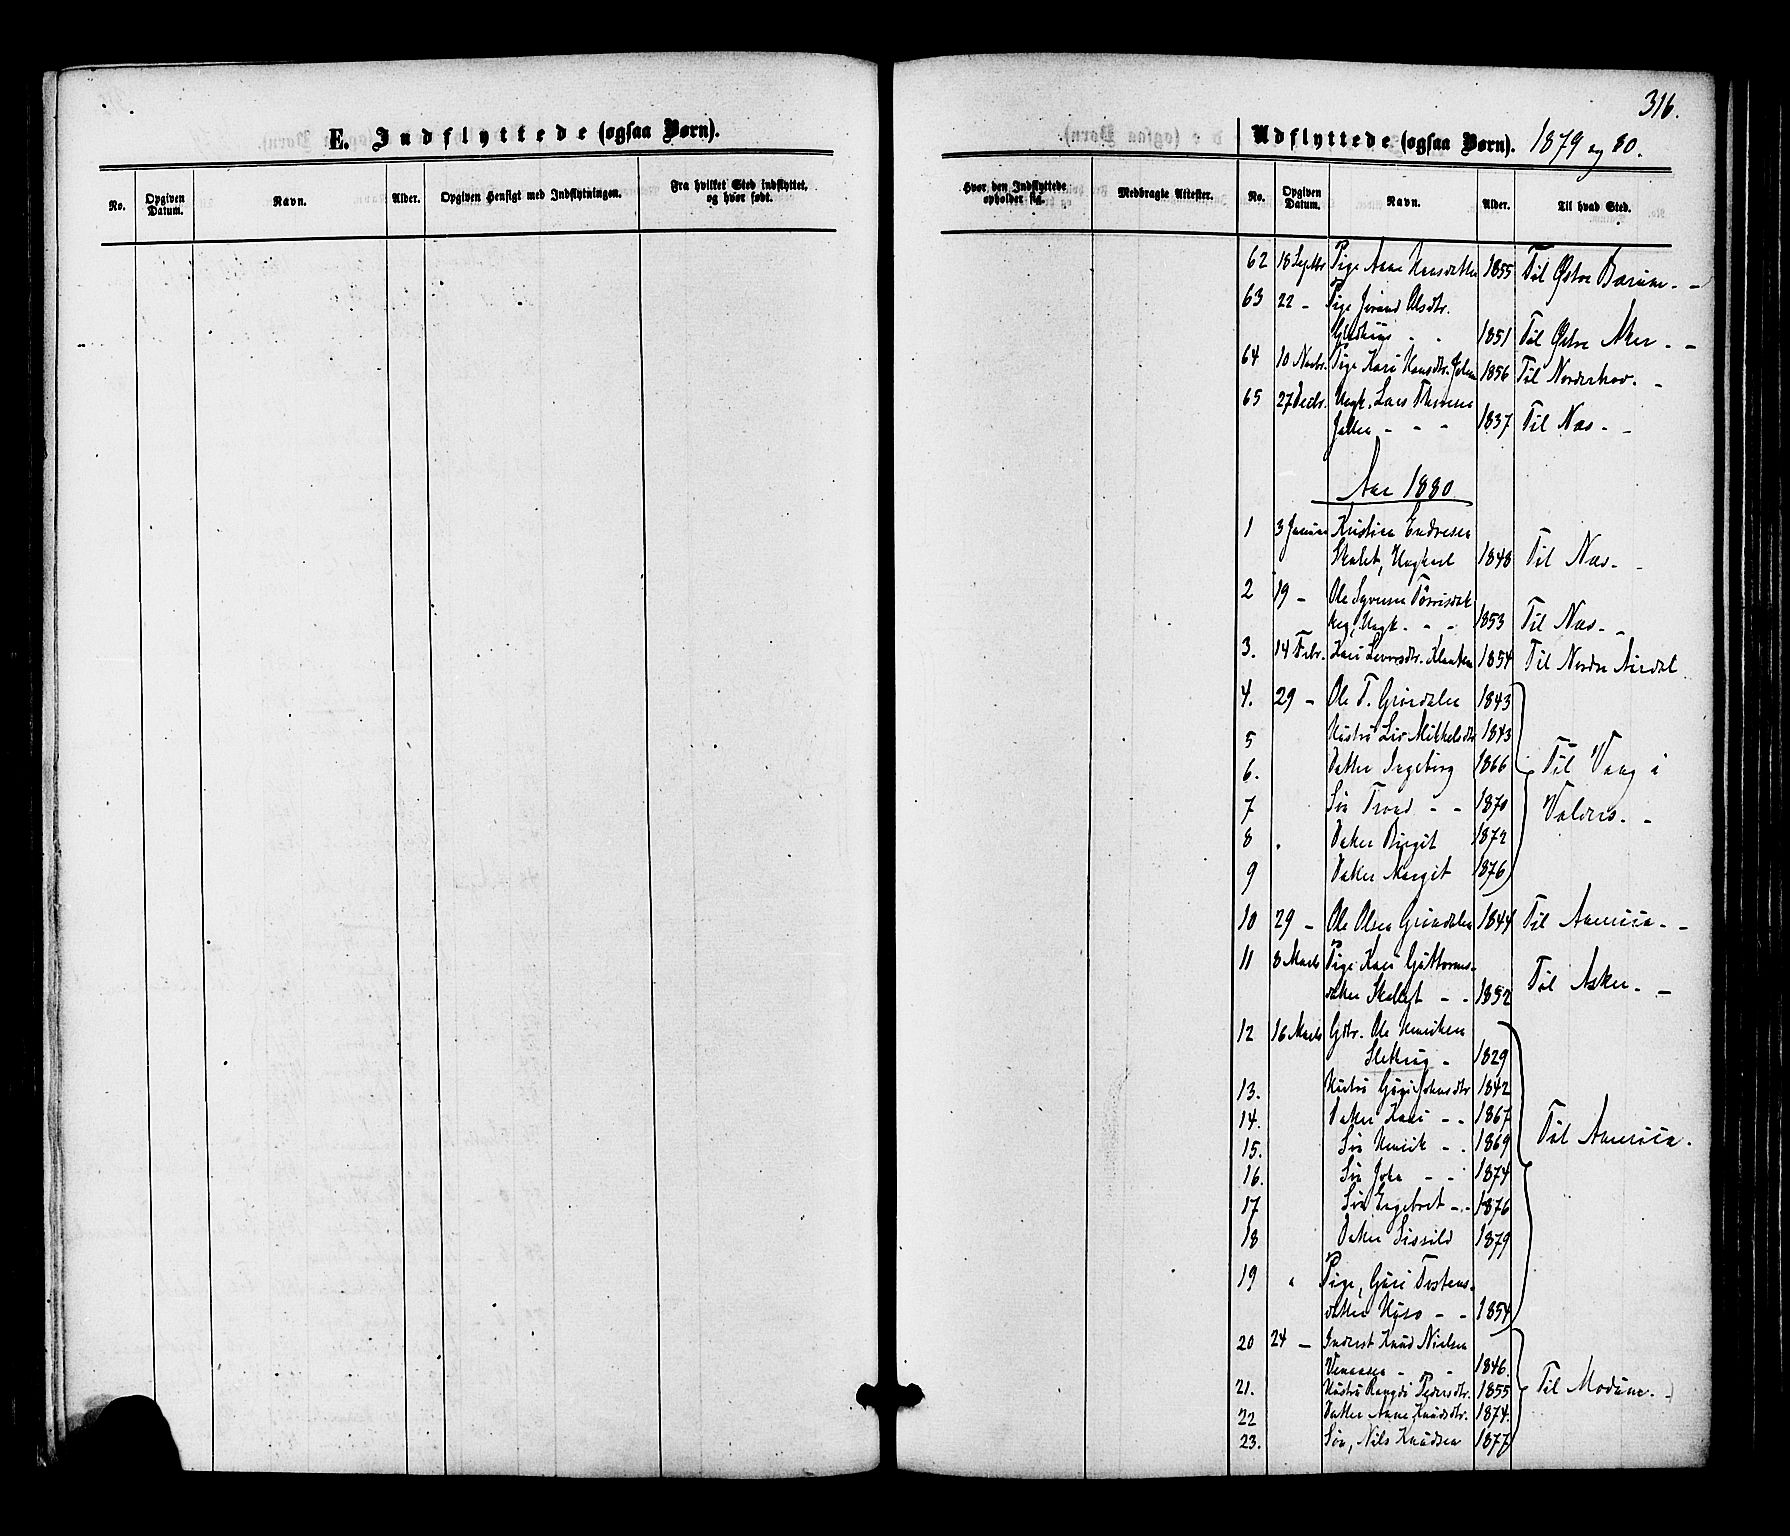 316.
E. Indflyttede (ogsaa Børn).
No. Opgiven Datum. Navn. Alder. Opgiven Hensigt med Indflytningen. Fra hvilket Sted indflyttet, og hvor født.
Udflyttede (ogsaa Børn). 1879 og 80.
Hvor den Indflyttede opholder sig. Medbragte Attester. No. Opgiven Datum. Navn. Alder. Til hvad Sted.
62 18 Septbr Pige Anne Hansdatter 1855 Til Østre Bærum. -
63 22 - Pige Jørand Olsdtr.
- - 1851 Til Østre Aker. - -
64 10 Novbr. Pige Kari Hansdtr. 1856 Til Norderhov. -
65 27 Decbr. Ungk. Lars
- - - 1837 Til Næs - -
Aar 1880
1 3 Januar Kristian Endresen
Skalet, Ungkarl 1848 Til Næs - -
2 19 - Ole Syversen
Ungk. - - 1853 Til Næs - -
3. 14 Febr. Kari 1854 Til Nordre Aurdal
4. 29 - Ole T. Grøndalen 1843
5 Hustru Liv Mikkelsdtr 1843
6. Datter Ingeborg 1866 Til Vang i
7 Søn Trond - - 1870 Valders. -
8 Datter Birgit 1872
9 Datter Margit 1876
10 29 - Ole Olsen Grøndalen 1844 Til America - -
11 8 Marts Pige Kari Guttorms-
datter - - 1852 Til Asker. -
12 16 Marts Gdbr. Ole Henriksen
Slettring - 1829
13. Hustru Guri Johnsdtr 1842
14. Datter Kari - - 1867 Til America.
15. Søn Henrik - - 1869
16. Søn John - - 1874
17 Søn Engebret - - 1876
18 Datter Sissild 1879
19 Pige, Guri Torstens-
datter - - 1854
20 24 - Inderst Knud Nielsen
- - 1846
21. Hustru Rangdi Pedersdtr. 1855 Til Modum. -
22 Datter Anne Knudsdtr. 1874.
23. Søn, Nils Knudsen 1877